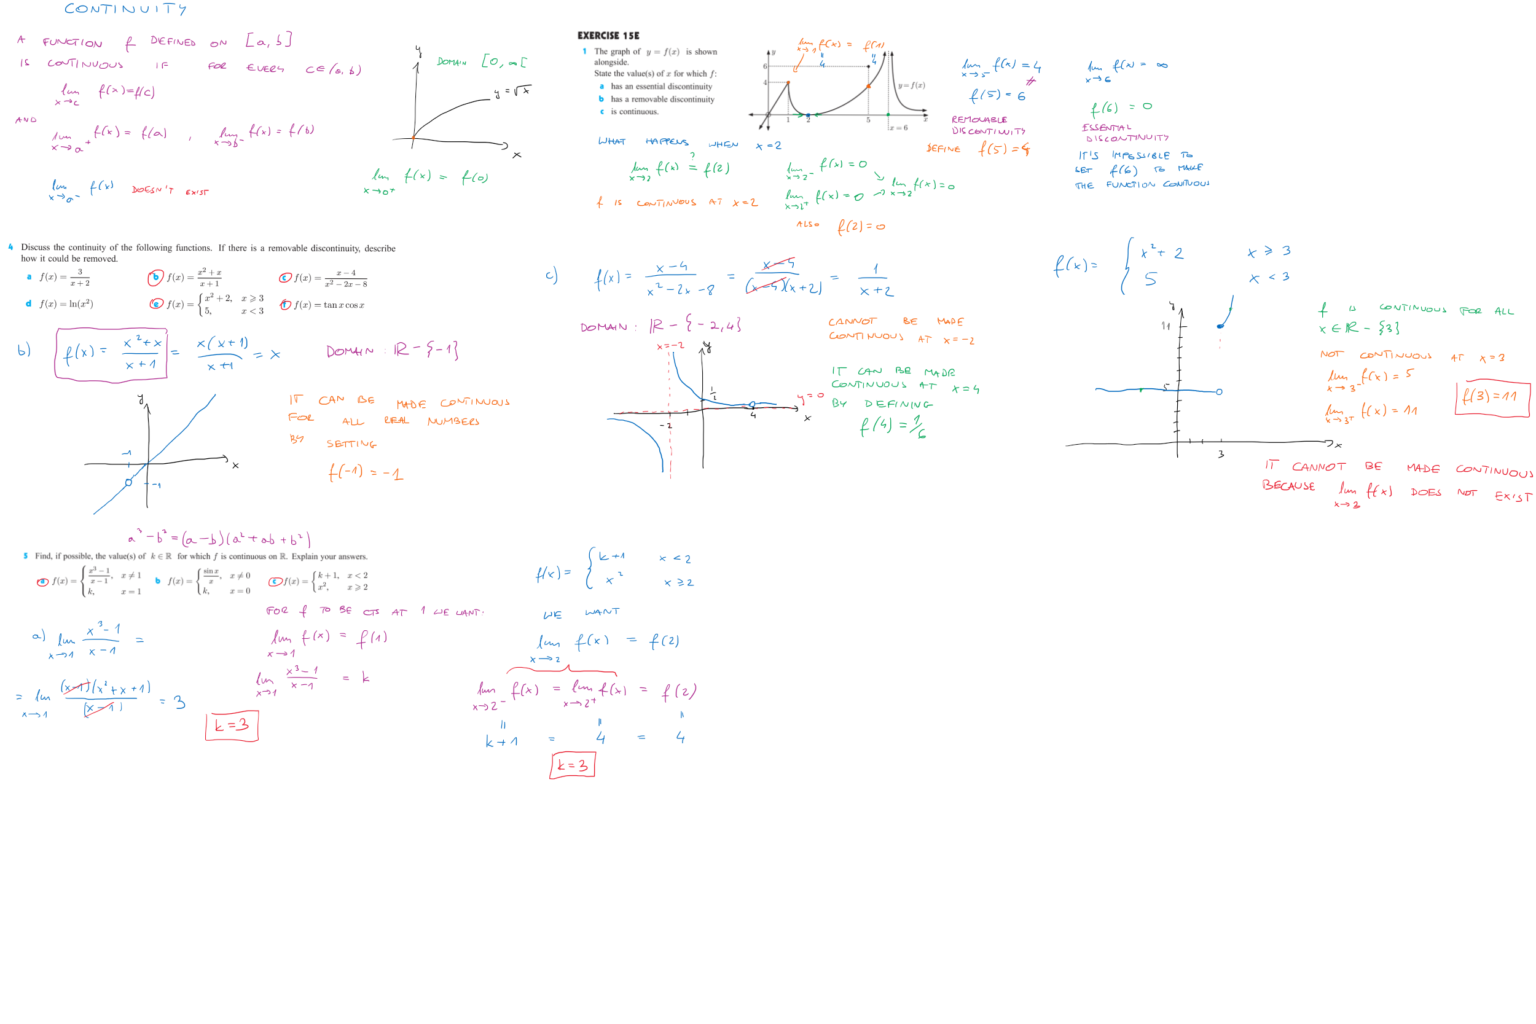 CONTINUITY
A FUNCTION f DEFINED ON [a, b]
IS CONTINUOUS IF FOR EVERY C∈(a, b)
lim x→c f(x)=f(c)
AND
lim x→a⁺ f(x) = f(a) , lim x→b⁻ f(x) = f(b)
lim x→a⁻ f(x) DOESN'T EXIST
y
DOMAIN [0, ∞[
y = √x
x
lim x→0⁺ f(x) = f(0)
EXERCISE 15E
1 The graph of y = f(x) is shown
alongside.
State the value(s) of x for which f:
a has an essential discontinuity
b has a removable discontinuity
c is continuous.
lim x→1 f(x) = f(1)
4 4
y
6
4
1 2 5
x
y = f(x)
x = 6
WHAT HAPPENS WHEN x=2
lim x→2 f(x) ?= f(2)
f IS CONTINUOUS AT x=2
lim x→2⁻ f(x) = 0
lim x→2⁺ f(x) = 0
lim x→2 f(x) = 0
ALSO f(2) = 0
lim x→5 f(x) = 4
≠
f(5) = 6
REMOVABLE
DISCONTIUITY
DEFINE f(5) = 4
lim x→6 f(x) = ∞
f(6) = 0
ESSENTIAL
DISCONTINUITY
IT'S IMPOSSIBLE TO
LET f(6) TO MAKE
THE FUNCTION CONTIUOUS
4 Discuss the continuity of the following functions. If there is a removable discontinuity, describe
how it could be removed.
a f(x) = 3/(x + 2) b f(x) = (x² + x)/(x + 1) c f(x) = (x − 4)/(x² − 2x − 8)
d f(x) = ln(x²) e f(x) = { x² + 2, x ⩾ 3
5, x < 3 f f(x) = tan x cos x
b) f(x) = (x²+x)/(x+1) = x(x+1)/(x+1) = x DOMAIN : ℝ − {−1}
y
x
-1
-1
IT CAN BE MADE CONTINUOUS
FOR ALL REAL NUMBERS
BY SETTING
f(−1) = −1
c) f(x) = (x−4)/(x²−2x−8) = (x−4)/((x−4)(x+2)) = 1/(x+2)
DOMAIN : ℝ − {−2, 4}
x=−2
y
1/2
y=0
x
-2
4
CANNOT BE MADE
CONTINUOUS AT x=−2
IT CAN BE MADE
CONTINUOUS AT x=4
BY DEFINING
f(4) = 1/6
f(x) = { x² + 2 x ⩾ 3
5 x < 3
y
11
5
x
3
f IS CONTINUOUS FOR ALL
x ∈ ℝ − {3}
NOT CONTINUOUS AT x=3
lim x→3⁻ f(x) = 5
lim x→3⁺ f(x) = 11
f(3) = 11
IT CANNOT BE MADE CONTINUOUS
BECAUSE lim x→3 f(x) DOES NOT EXIST
a³ − b³ = (a−b)(a² + ab + b²)
5 Find, if possible, the value(s) of k ∈ ℝ for which f is continuous on ℝ. Explain your answers.
a f(x) = { (x³ − 1)/(x − 1), x ≠ 1
k, x = 1
b f(x) = { sin x/x, x ≠ 0
k, x = 0
c f(x) = { k + 1, x < 2
x², x ⩾ 2
a) lim x→1 (x³−1)/(x−1) =
= lim x→1 (x−1)(x²+x+1)/(x−1) = 3
FOR f TO BE CTS AT 1 WE WANT.
lim x→1 f(x) = f(1)
lim x→1 (x³−1)/(x−1) = k
k=3
f(x) = { k+1 x < 2
x² x ⩾ 2
WE WANT
lim x→2 f(x) = f(2)
lim x→2⁻ f(x) = lim x→2⁺ f(x) = f(2)
k+1 = 4 = 4
k=3